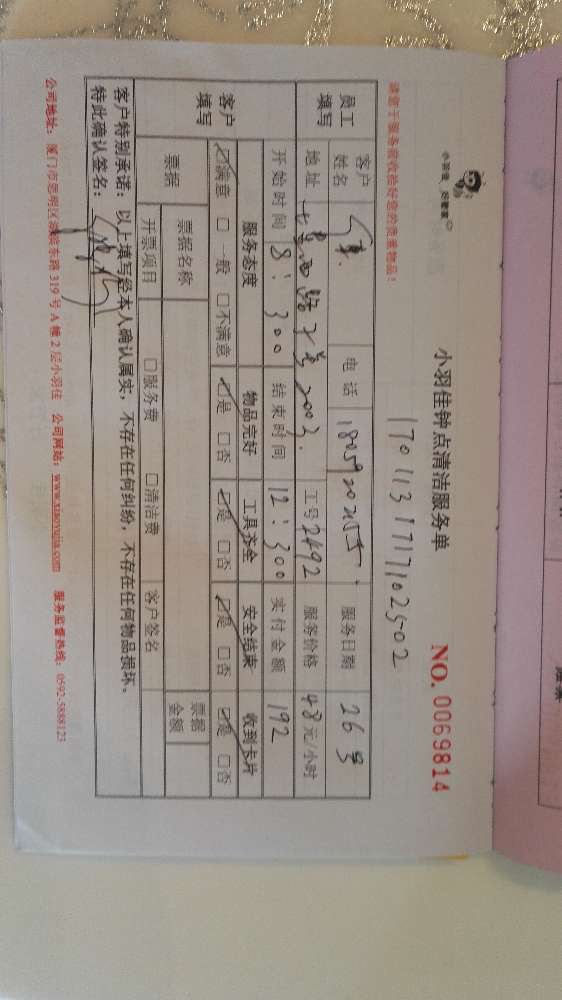 小羽佳 好管家
小羽佳钟点清洁服务单 NO. 0069814
1701131717102502
请您于服务前收拾好您的贵重物品!
员工填写 客户姓名 电话 服务日期 26号
地址 七星西路 号2003. 工号2492 服务价格 48元/小时
开始时间 8:300 结束时间 12:300 实付金额 192
客户填写 服务态度 物品完好 工具齐全 安全结束 收到卡片
☑满意 □一般 □不满意 ☑是 □否 ☑是 □否 ☑是 □否 ☑是 □否
票据 票据名称 票据金额
开票项目 □服务费 □清洁费 客户签名
客户特别承诺:以上填写经本人确认属实,不存在任何纠纷,不存在任何物品损坏。
特此确认签名:
公司地址:厦门市思明区 东路319号A幢2层小羽佳 公司网站:www.xiaoyujia.com 服务监督热线:0592-5888123